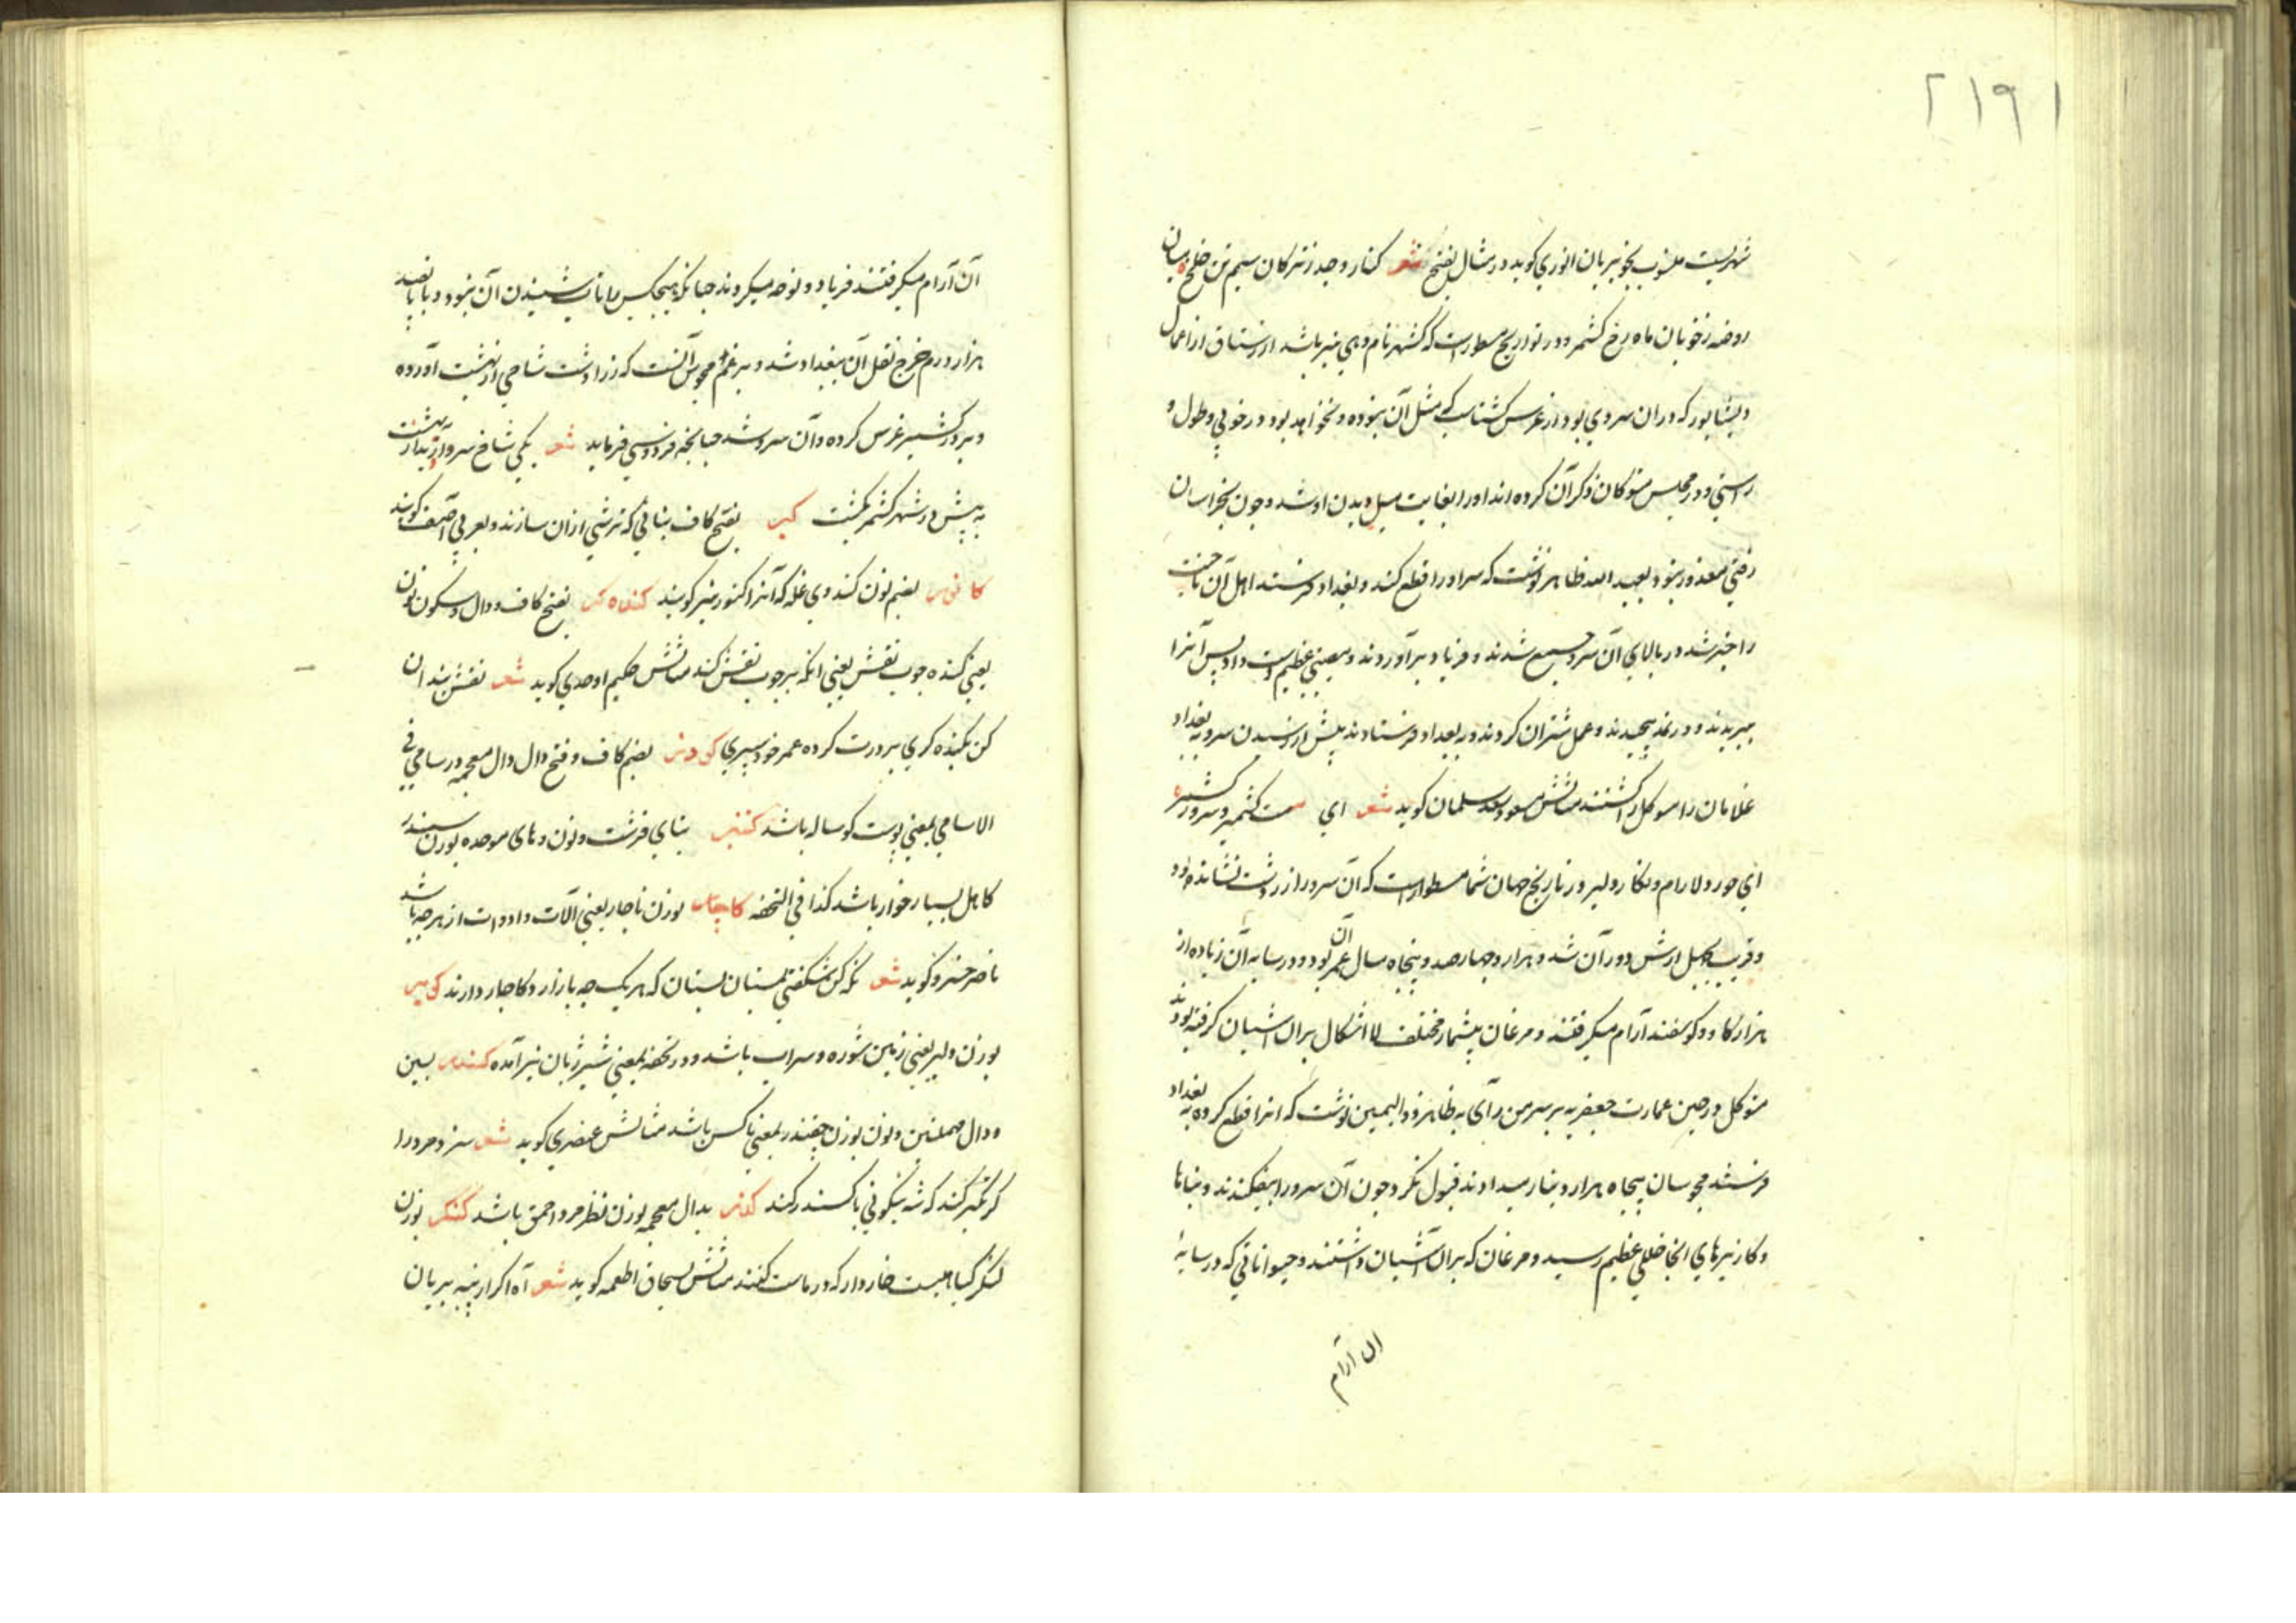 ۲۱۹۱
شهریست منسوب بخوبرویان انوری کوید در مثال بفتح شعر کنار دجله ز ترکان سیم تن خلخ میان
رحبه ز خوبان ماه رخ کشمر و در تواریخ مسطورست که کشمر نام دهی نیز باشد از رستاق از اعمال
نیشابور که در ان سروی بود از غرس کشتاسب که مثل آن نبوده و نخواهد بود در خوبی و طول و
راستی و در مجلس متوکل ذکر آن کرده اند اورا بغایت میل دیدن او شد و چون بخراسان
رفتن معذور بود بعبد الله طاهر نوشت که سرو را قطع کند و ببغداد فرستد اهل آن ناحیت
را خبر شد در بالای آن سرو جمع شدند و فریاد برآوردند و مصیبتی عظیم دست داد پس آنرا
ببریدند و در نمد پیچیدند و حمل شتران کردند و ببغداد فرستادند پیش از رسیدن سرو ببغداد
غلامان متوکل را کشتند مثالش مسعود سعد سلمان کوید شعر ای بت کشمیر و سرو کشمر
ای حور دلارام و نکار دلبر و در تاریخ جهان نما مسطورست که آن سرو را زردشت نشانده بود
و قریب چهل ارش دور آن شد و هزار و چهارصد و پنجاه سال عمر آن بود و در سایه آن زیاده از
هزار کاو و کوسفند آرام میکرفتند و مرغان بیشمار مختلف الاشکال بران آشیان کرفته بودند
متوکل در حین عمارت جعفریه سرمن رآی به طاهر ذو الیمین نوشت که انرا قطع کرده به بغداد
فرستد مجوسان پنجاه هزار دینار میدادند قبول نکرد و چون آن سرو را بیفکندند و بناها
و کاریزهای انجا خللی عظیم رسید و مرغان که بران آشیان داشتند و حیواناتی که در سایهٔ
ان آرام
آن آرام میکرفتند فریاد و نوحه میکردند چنانکه هیچکس را تاب شنیدن آن نبود و پانصد
هزار درم خرج نقل آن ببغداد شد و بزعم مجوس آنست که زرادشت شاخی از بهشت آورده
و بر در کشمر غرس کرده و آن سرو شد چنانچه فردوسی فرماید شعر یکی شاخ سرو آورید از بهشت
به پیش در شهر کشمر بکشت کبر بفتح کاف نباتی که ترشی ازان سازند و بعربی اصف کویند
کانور بضم نون کندوی غله که آنرا کنور نیز کویند کنده کر بفتح کاف و دال و سکون نون
یعنی کنده چوب نقش یعنی انکه بر چوب نقش کند مثالش حکیم اوحدی کوید شعر نقش بند ان
کن بکنده کری پرورت کرده عمر خود سپری کودر بضم کاف و فتح دال و ذال معجمه در سامی فی
الاسامی بمعنی پوست کوساله باشد کنتبر بتای قرشت و نون و بای موحده بوزن سمندر
کاهل بسیار خوار باشد کذا فی التحفه کاچار بوزن ناچار یعنی آلات و ادوات از هرچه باشد
ناصر خسرو کوید شعر نکه کن شکفتی بمستان بستان که هر یک چه بازار و کاچار دارند کویر
بوزن دلیر یعنی زمین شوره و سراب باشد و در تحفه بمعنی شیر ژیان نیز آمده کسندر بسین
و دال مهملتین و نون بوزن چغندر بمعنی ناکس باشد مثالش عنصری کوید شعر سزد مرد را
کر تکبر کند که شه نیکوئی با کسندر کند کذر بدال معجمه بوزن نظر مرد احمق باشد کنکر بوزن
لنکر کیاهیست خاردار که در ماست کنند مثالش بسحاق اطعمه کوید شعر آه اکر از پنیر بریان